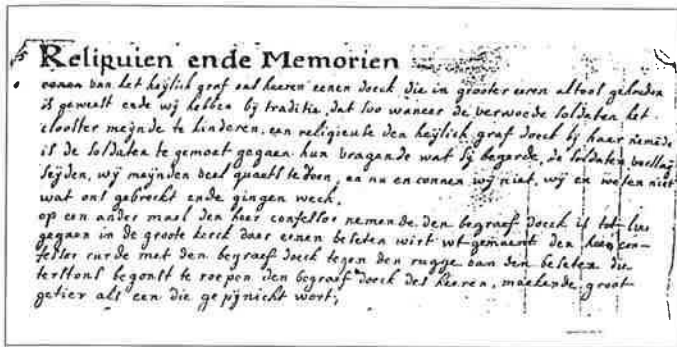 Reliquien ende Memorien
conen van het heijlich graf ons heeren eenen doeck die in grooter eeren altoos gehouden
is geweest ende wij hebben bij traditie, dat soo waneer de verwoede soldaten het
clooster meijnde te hinderen, een religieuse den heijlich graf doeck bij haer nemende
is de soldaten te gemoet gegaen hun vragende wat sij begerde, de soldaten
seijden, wij meijnden veel quaets te doen, en nu en connen wij niet, wij en weten niet
wat ons gebreckt ende gingen wech.
op een ander mael den heer confessor nemende den begraef doeck is tot
gegaen in de groote kerck daer eenen beseten wirt den heer con-
fessor rurde met den begraef doeck tegen den rugge van den beseten die
terstont begonst te roepen den begraef doeck des heeren, maekende groot
getier als een die gepijnicht wort;